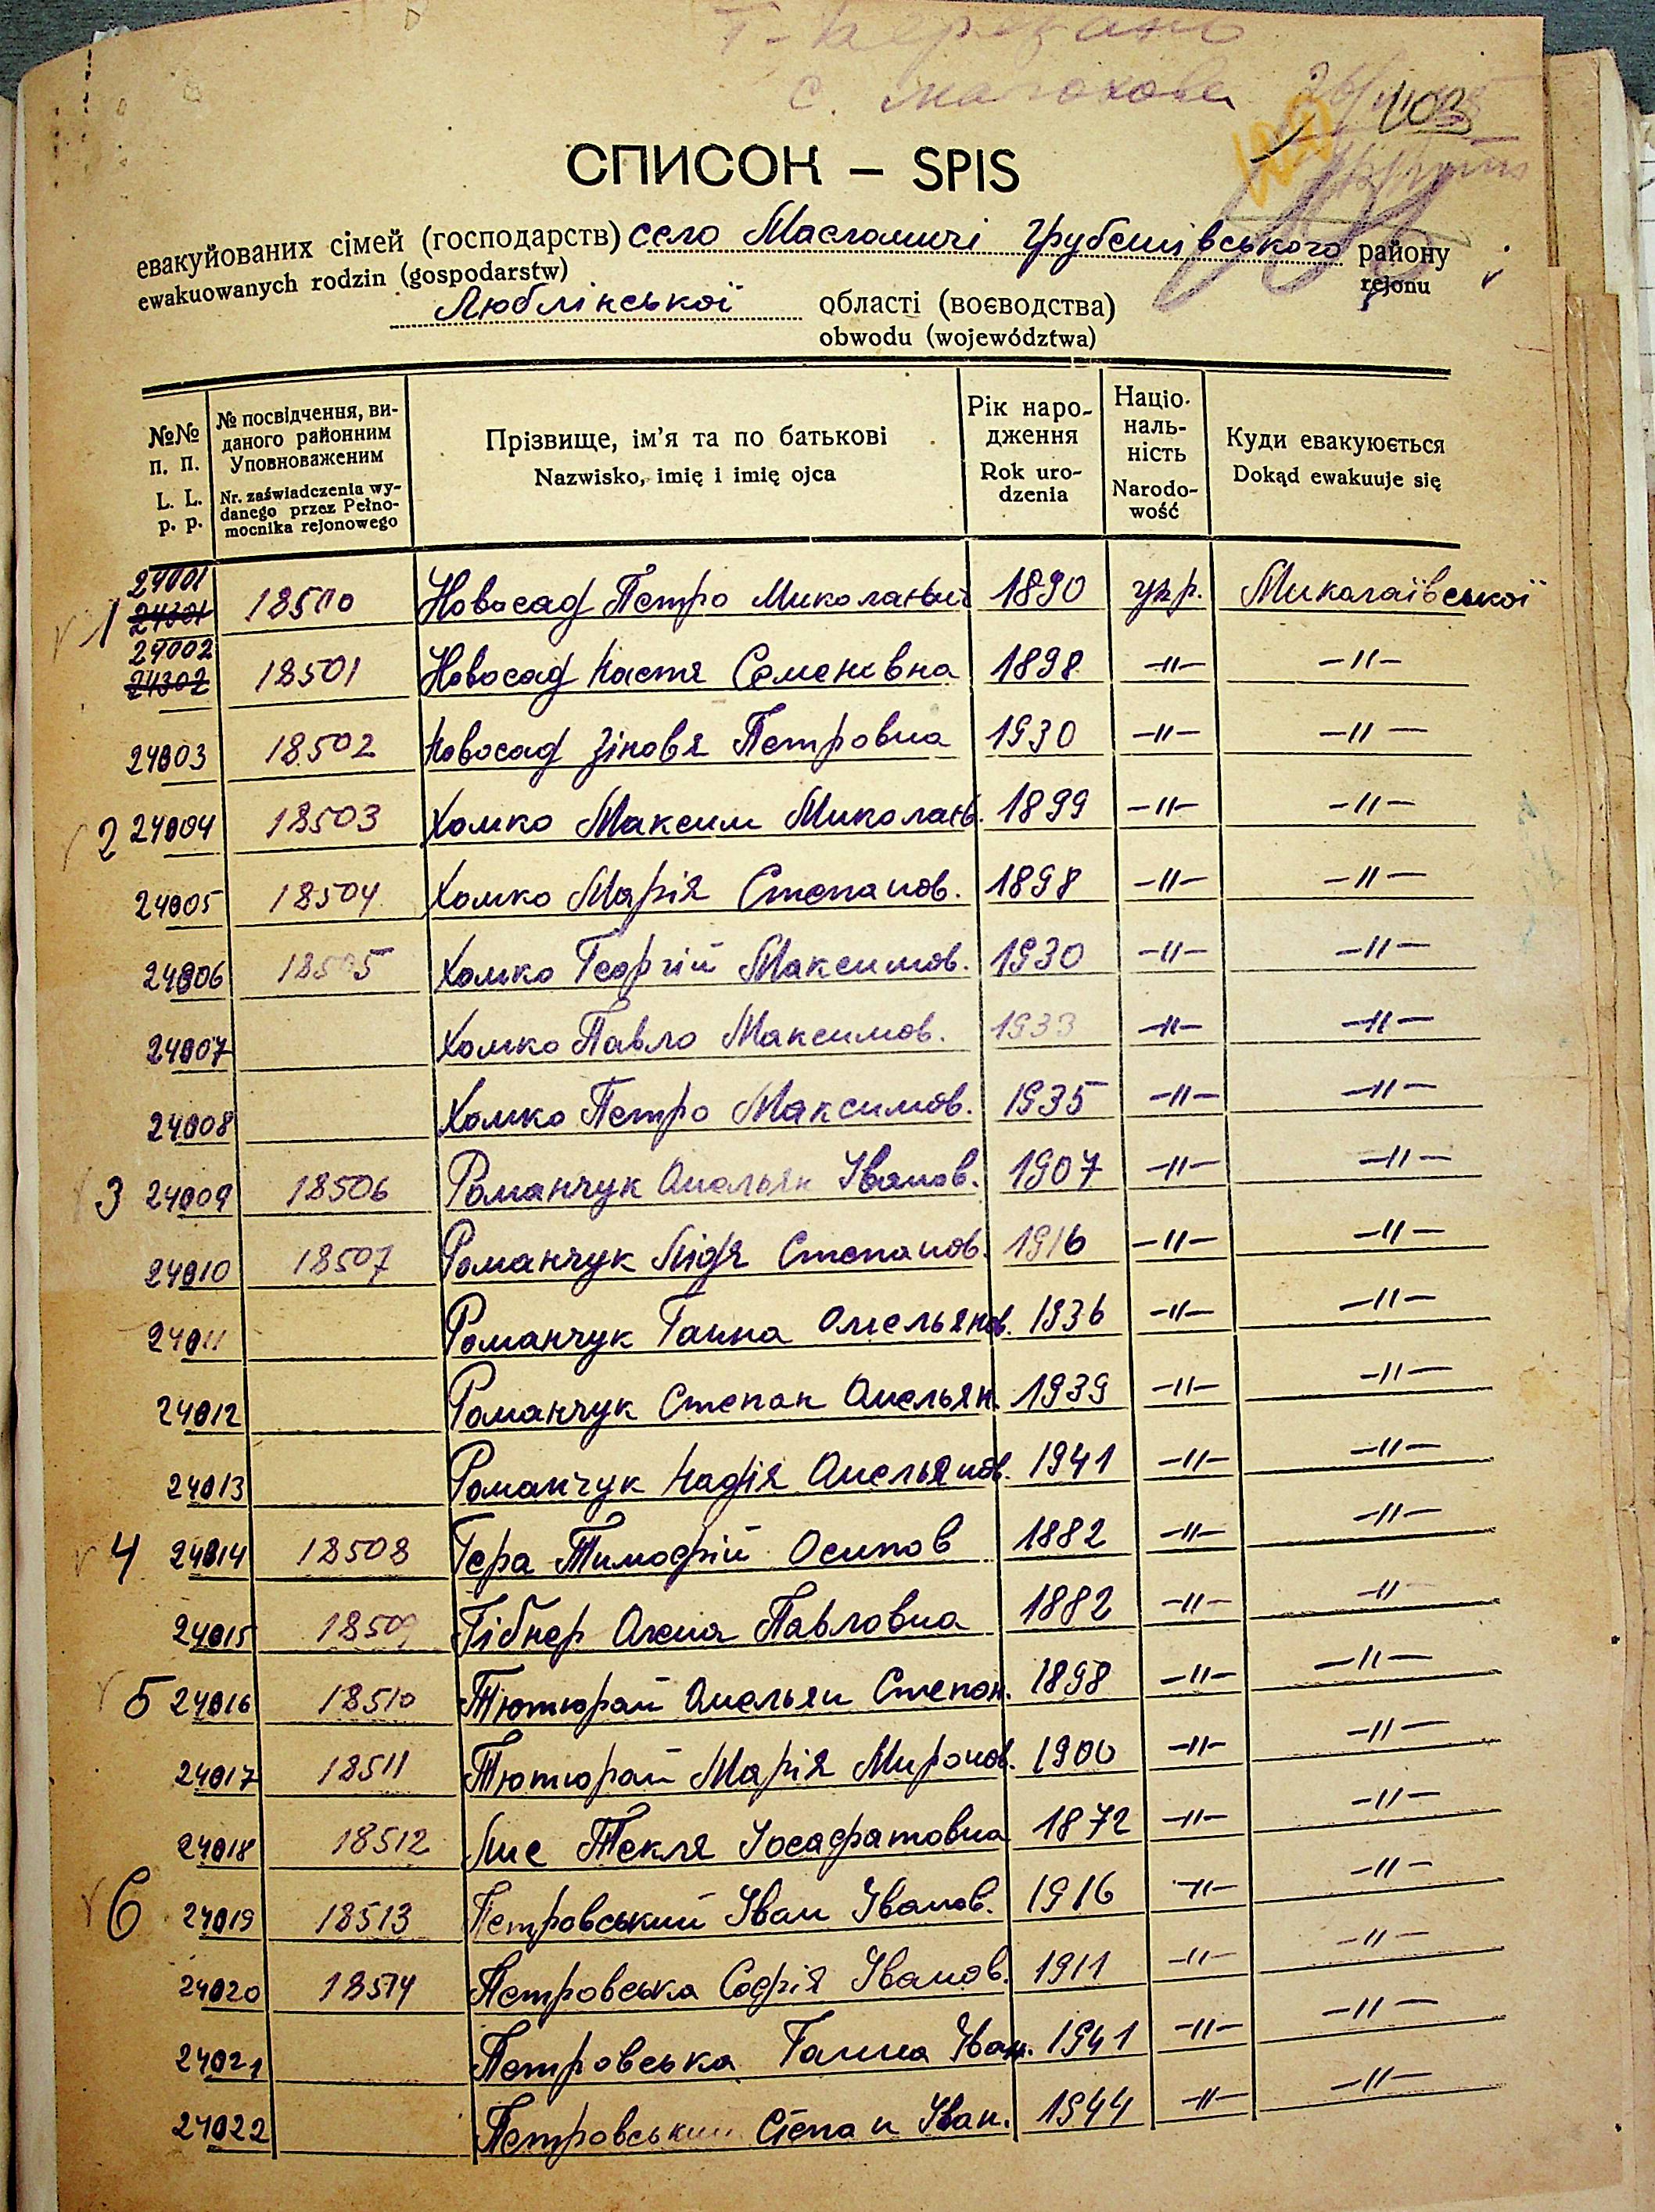 СПИСОК – SPIS
евакуйованих сімей (господарств) село Масломичі Грубешівського району
ewakuowanych rodzin (gospodarstw) rejonu
Люблінської області (воєводства)
obwodu (województwa)
№№ п. п. L. L. p. p.
№ посвідчення, виданого районним Уповноваженим Nr. zaświadczenia wydanego przez Pełnomocnika rejonowego
Прізвище, ім'я та по батькові Nazwisko, imię i imię ojca
Рік народження Rok urodzenia
Національність Narodowość
Куди евакуюється Dokąd ewakuuje się
24001
1 24301 18500 Новосад Петро Миколаєвич 1890 укр. Миколаївської
24002
24302 18501 Новосад Настя Семенівна 1898 -"- -"-
24003 18502 Новосад Зіновя Петровна 1930 -"- -"-
2 24004 18503 Хомко Максим Миколаєв. 1899 -"- -"-
24005 18504 Хомко Марія Степанов. 1898 -"- -"-
24006 18505 Хомко Георгій Максимов. 1930 -"- -"-
24007 Хомко Павло Максимов. 1933 -"- -"-
24008 Хомко Петро Максимов. 1935 -"- -"-
3 24009 18506 Романчук Омельян Іванов. 1907 -"- -"-
24010 18507 Романчук Лідя Степанов. 1916 -"- -"-
24011 Романчук Ганна Омельянов. 1936 -"- -"-
24012 Романчук Степан Омельян. 1939 -"- -"-
24013 Романчук Надія Омельянов. 1941 -"- -"-
4 24014 18508 Гера Тимофій Осипов 1882 -"- -"-
24015 18509 Гібнер Олена Павловна 1882 -"- -"-
5 24016 18510 Тютюрай Омельян Степан. 1898 -"- -"-
24017 18511 Тютюрай Марія Миронов. 1900 -"- -"-
24018 18512 Лис Текля Йосафатовна 1872 -"- -"-
6 24019 18513 Петровський Іван Іванов. 1916 -"- -"-
24020 18514 Петровська Софія Іванов. 1911 -"- -"-
24021 Петровська Ганна Іван. 1941 -"- -"-
24022 Петровський Степан Іван. 1944 -"- -"-